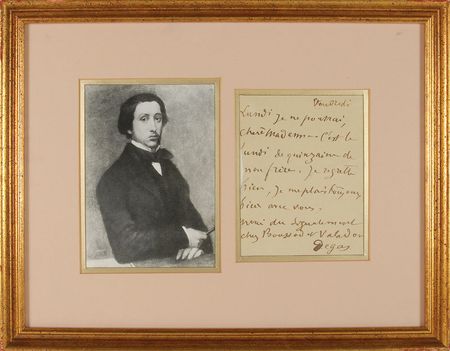 Vendredi
Lundi je ne pourrai,
chère Madame – C'est le
lundi de quinzaine de
mon frère. Je regrette
bien, je me plais toujours
bien avec vous.
merci du
chez Boussod & Valadon
Degas